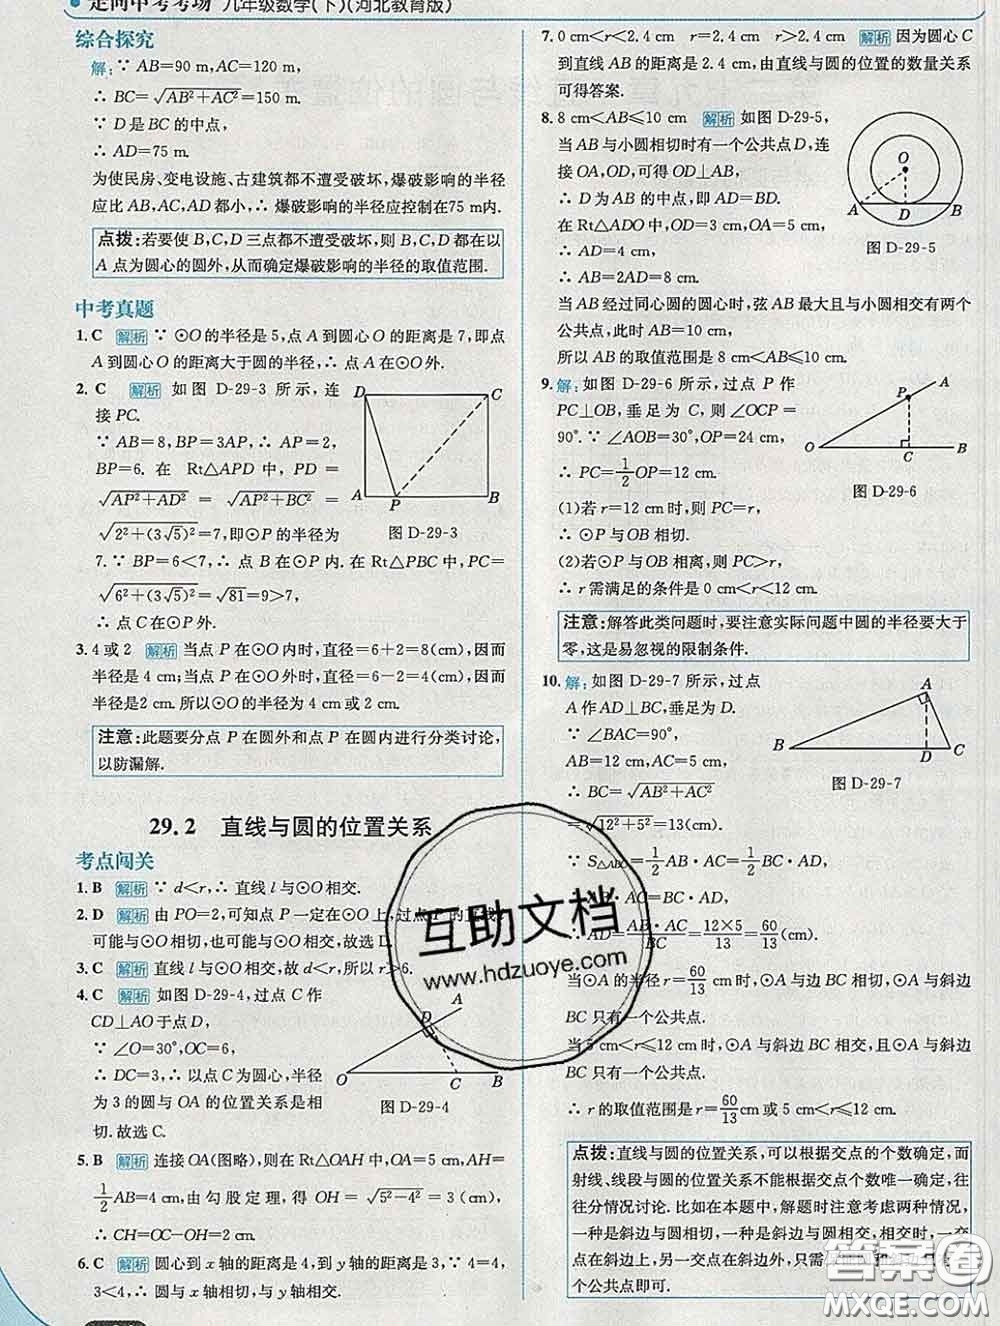 走向中考考场 九年级数学(下)(河北教育版)
综合探究
解:∵ AB=90 m,AC=120 m,
∴ BC=√(AB²+AC²)=150 m.
∵ D是BC的中点,
∴ AD=75 m.
为使民房、变电设施、古建筑都不遭受破坏,爆破影响的半径
应比AB,AC,AD都小,∴ 爆破影响的半径应控制在75 m内.
点拨:若要使B,C,D三点都不遭受破坏,则B,C,D都在以
A点为圆心的圆外,从而确定爆破影响的半径的取值范围.
中考真题
1. C 解析 ∵ ⊙O的半径是5,点A到圆心O的距离是7,即点
A到圆心O的距离大于圆的半径,∴ 点A在⊙O外.
2. C 解析 如图D-29-3所示,连
接PC.
∵ AB=8,BP=3AP,∴ AP=2,
BP=6. 在 Rt△APD 中, PD =
√(AP²+AD²) = √(AP²+BC²) =
√(2²+(3√5)²)=7,即⊙P的半径为
7. ∵ BP=6<7,∴ 点B在⊙P内. 在Rt△PBC中,PC=
√(6²+(3√5)²)=√81=9>7,
∴ 点C在⊙P外.
D C A P B
图 D-29-3
3. 4或2 解析 当点P在⊙O内时,直径=6+2=8(cm),因而
半径是4 cm;当点P在⊙O外时,直径=6-2=4(cm),因而
半径是2 cm. 所以⊙O的半径为4 cm或2 cm.
注意:此题要分点P在圆外和点P在圆内进行分类讨论,
以防漏解.
29.2 直线与圆的位置关系
考点闯关
1. B 解析 ∵ d<r,∴ 直线l与⊙O相交.
2. D 解析 由PO=2,可知点P一定在⊙O上,过点P的直线l
可能与⊙O相切,也可能与⊙O相交,故选D.
3. C 解析 直线l与⊙O相交,故d<r,所以r>6.
4. C 解析 如图D-29-4,过点C作
CD⊥AO于点D,
∵ ∠O=30°,OC=6,
∴ DC=3,∴ 以点C为圆心,半径
为3的圆与OA的位置关系是相
切.故选C.
A D O C B
图 D-29-4
5. B 解析 连接OA(图略),则在Rt△OAH中,OA=5 cm,AH=
1/2 AB=4 cm,由勾股定理,得 OH=√(5²-4²)=3(cm),
∴ CH=OC-OH=2 cm.
6. C 解析 圆心到x轴的距离是4,到y轴的距离是3,∵ 4=4,
3<4,∴ ⊙O与x轴相切,与y轴相交.
7. 0 cm<r<2.4 cm r=2.4 cm r>2.4 cm 解析 因为圆心C
到直线AB的距离是2.4 cm,由直线与圆的位置的数量关系
可得答案.
8. 8 cm<AB≤10 cm 解析 如图D-29-5,
当AB与小圆相切时有一个公共点D,连
接OA,OD,可得OD⊥AB,
∴ D为AB的中点,即AD=BD.
在Rt△ADO中,OD=3 cm,OA=5 cm,
∴ AD=4 cm,
∴ AB=2AD=8 cm.
O A D B
图 D-29-5
当AB经过同心圆的圆心时,弦AB最大且与小圆相交有两个
公共点,此时AB=10 cm,
所以AB的取值范围是8 cm<AB≤10 cm.
9. 解:如图D-29-6所示,过点P作
PC⊥OB,垂足为C,则∠OCP=
90°. ∵ ∠AOB=30°,OP=24 cm,
∴ PC=1/2 OP=12 cm.
(1)若r=12 cm时,则PC=r,
∴ ⊙P与OB相切.
(2)若⊙P与OB相离,则PC>r,
∴ r需满足的条件是0 cm<r<12 cm.
A P O C B
图 D-29-6
注意:解答此类问题时,要注意实际问题中圆的半径要大于
零,这是易忽视的限制条件.
10. 解:如图D-29-7所示,过点
A作AD⊥BC,垂足为D.
∵ ∠BAC=90°,
AB=12 cm,AC=5 cm,
∴ BC=√(AB²+AC²)
=√(12²+5²)=13(cm).
A B D C
图 D-29-7
∵ S△ABC=1/2 AB·AC=1/2 BC·AD,
∴ AB·AC=BC·AD,
∴ AD=AB·AC/BC=12×5/13=60/13(cm).
当⊙A的半径r=60/13 cm时,⊙A与边BC相切,⊙A与斜边
BC只有一个公共点.
当5 cm<r≤12 cm时,⊙A与斜边BC相交,且⊙A与斜边
BC只有一个公共点.
∴ r的取值范围是r=60/13 cm或5 cm<r≤12 cm.
点拨:直线与圆的位置关系,可以根据交点的个数确定,而
射线、线段与圆的位置关系不能根据交点个数唯一确定,往
往分情况讨论. 比如在本题中,解题时注意考虑两种情况,
一种是斜边与圆相切,一种是斜边与圆相交,相交时,一交
点在斜边上,另一交点在斜边外,只需
个公共点即可.
互助文档
www.hdzuoye.com
答案圈
MXQE.COM